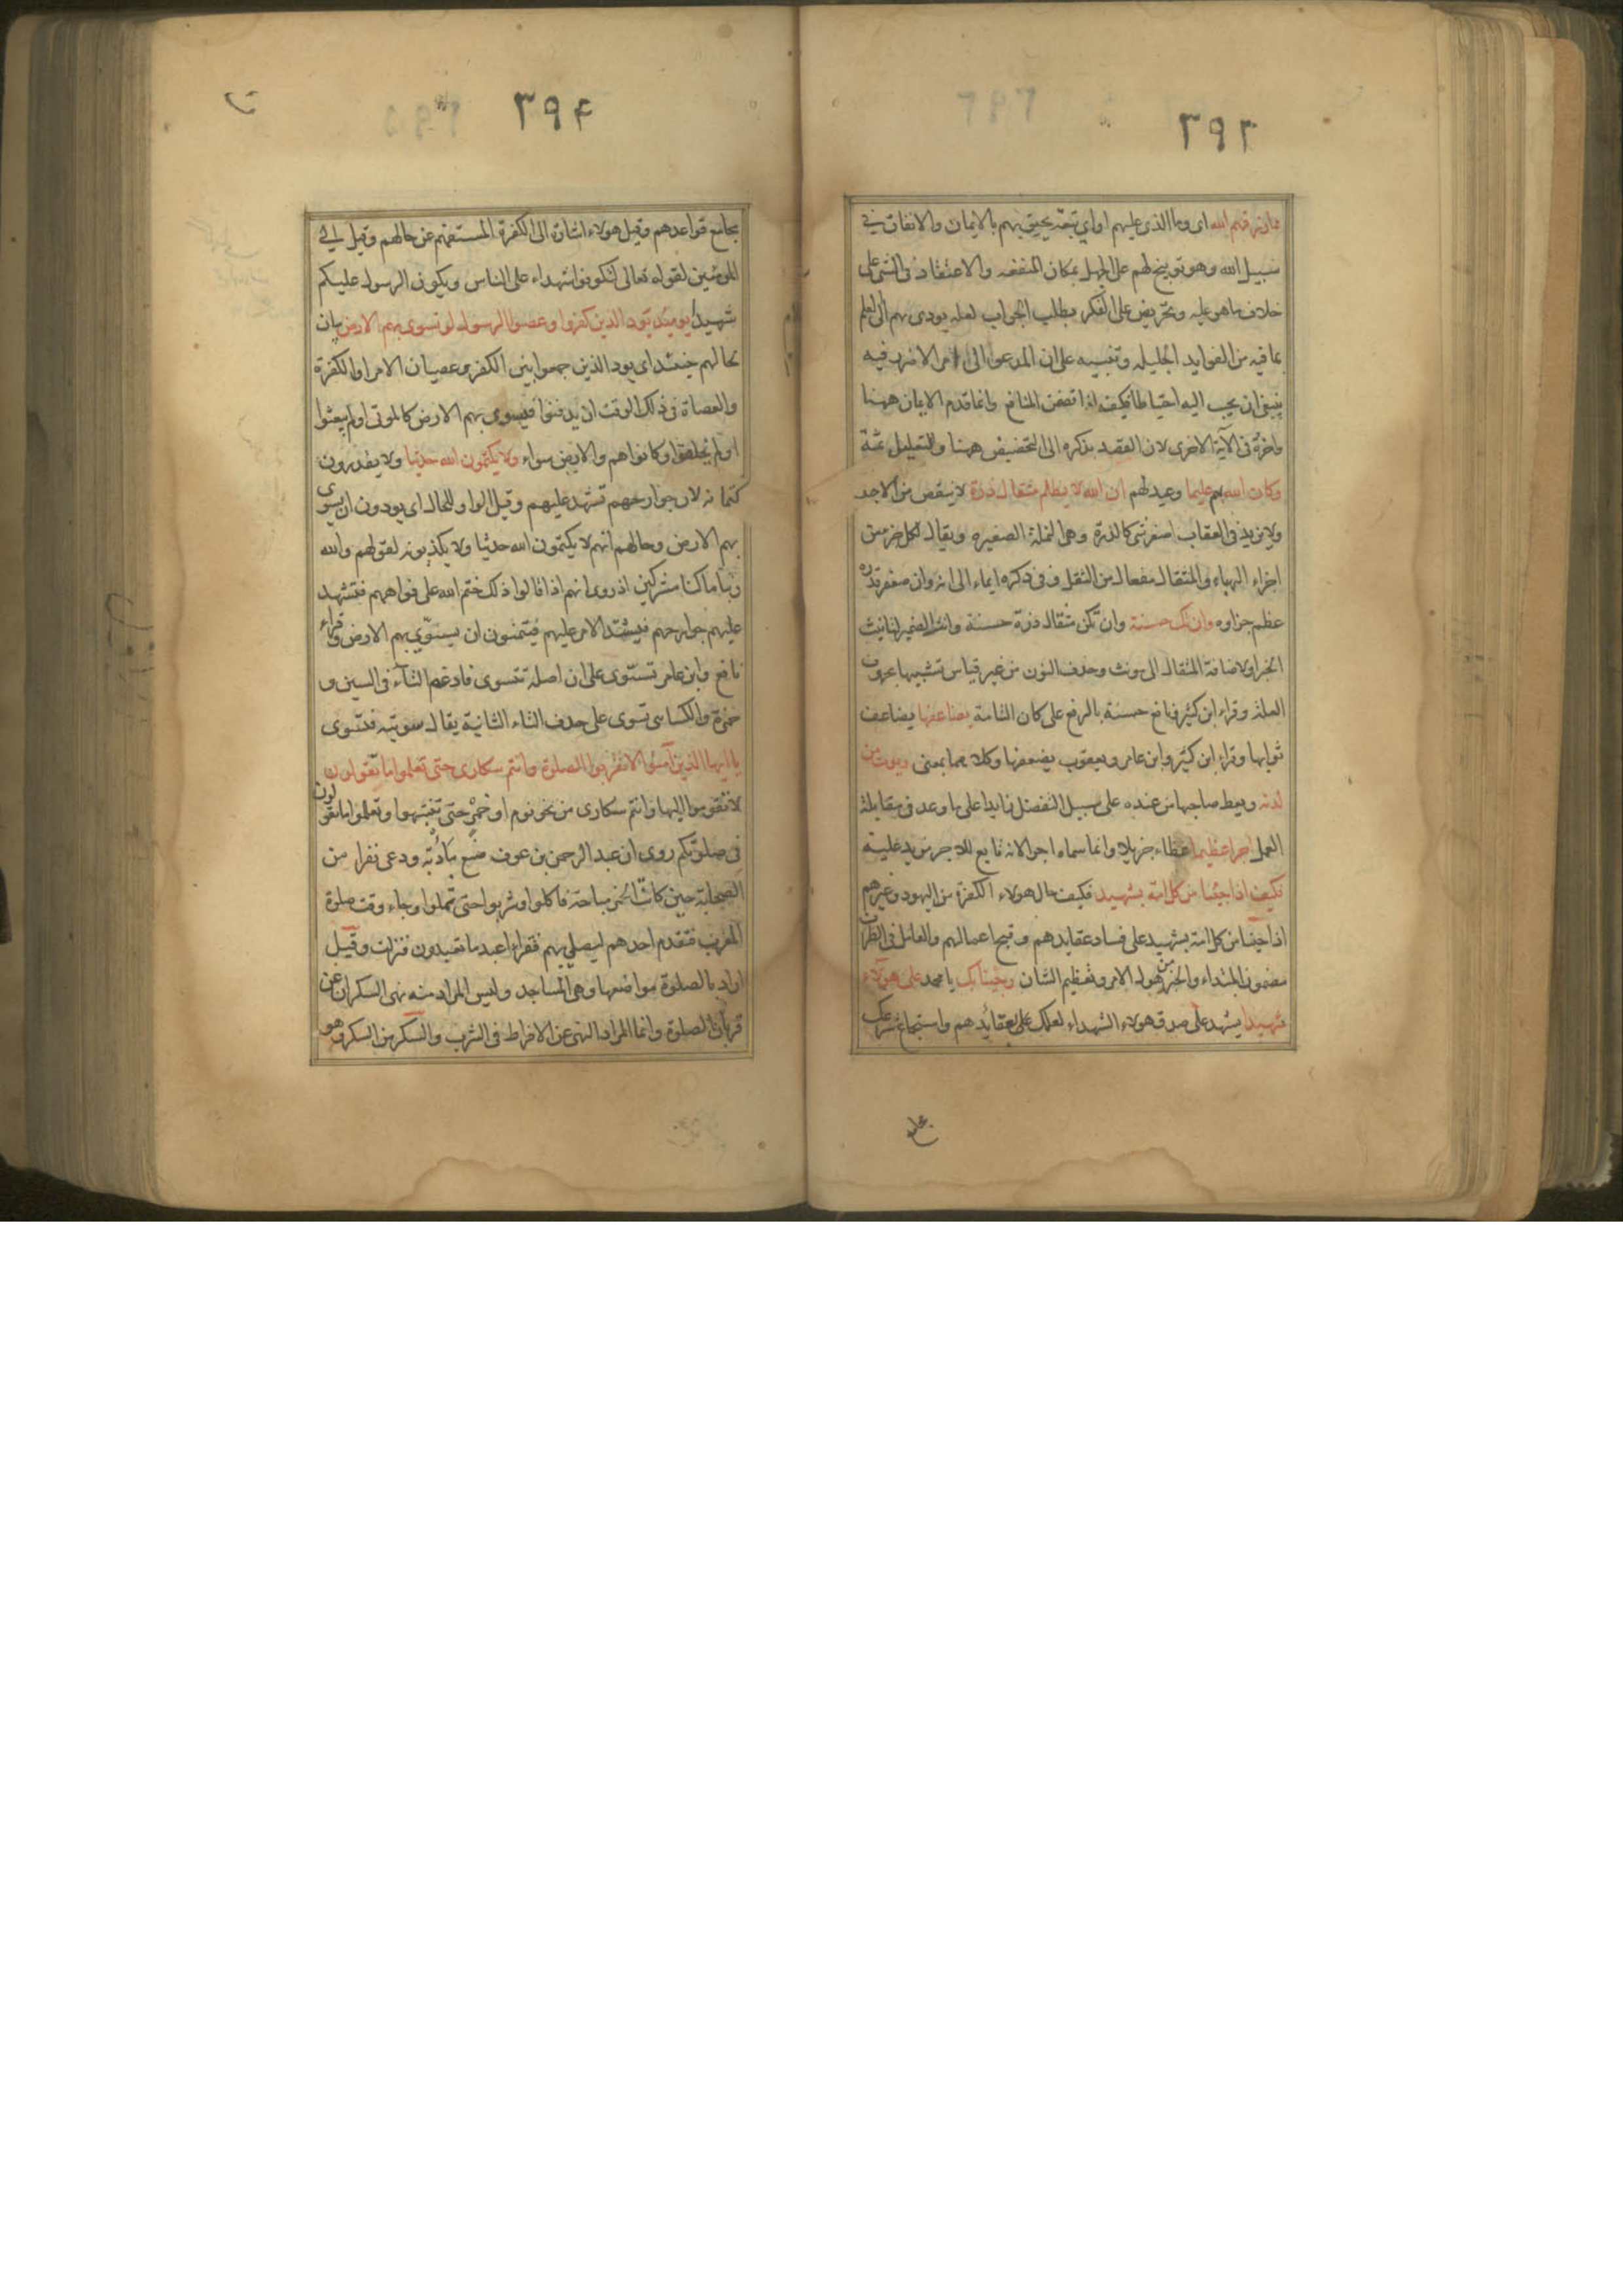 ٣٩٣
مما رزقهم الله اى وما الذى عليهم او اي تبعة تحيق بهم بالايمان والانفاق في
سبيل الله وهو توبيخ لهم على الجهل بمكان المنفعه والاعتقاد فى الشى على
خلاف ما هو عليه وتحريض على الفكر بطلب الجواب لعله يودى بهم الى العلم
بما فيه من الفوايد الجليله وتنبيه على ان المدعو الى امر لا ضرر فيه
ينبغى ان يجيب اليه احتياطا فكيف اذا تضمن المنافع وانما قدم الايمان ههنا
واخره فى الآية الاخرى لان القصد بذكره الى التخضيض ههنا والتعليل ثمة
وكان الله بهم عليما وعيد لهم ان الله لا يظلم مثقال ذرة لا ينقص من الاجر
ولا يزيد فى العقاب اصغر شى كالذرة وهى النملة الصغيره ويقال لكل جزء من
اجزاء الهباء والمثقال مفعال من الثقل وفى ذكره ايماء الى انه وان صغر قدره
عظم جزاوه وان تك حسنة وان تكن مثقال ذرة حسنة وانث الضمير لتانيث
الخبر او لاضافة المثقال الى مونث وحذف النون من غير قياس تشبيها بحروف
العلة وقراء ابن كثير ونافع حسنة بالرفع على كان التامة يضاعفها يضاعف
ثوابها وقراء ابن كثير وابن عامر ويعقوب يضعفها وكلاهما بمعنى ويوت من
لدنه ويعط صاحبها من عنده على سبيل التفضل زايدا على ما وعد فى مقابلة
العمل اجرا عظيما عطاء جزيلا وانما سماه اجرا لانه تابع للاجر مزيد عليه
فكيف اذا جئنا من كل امة بشهيد فكيف حال هولاء الكفرة من اليهود وغيرهم
اذا جئنا من كل امة بشهيد على فساد عقايدهم وقبح اعمالهم والعامل فى الظرف
مضمون المبتداء والخبر من هول الامر وتعظيم الشان وجئنا بك يا محمد على هولاء
شهيدا يشهد على صدق هولاء الشهداء لعلمك على بعقائدهم واستجماع شرعك
بجا مع
٣٩٤
بجامع قواعدهم وقيل هولاء اشارة الى الكفرة المستفهم عن حالهم وقيل الى
المومنين لقوله تعالى لتكونوا شهداء على الناس ويكون الرسول عليكم
شهيدا يومئذ يود الذين كفروا وعصوا الرسول لو تسوى بهم الارض بيان
لحالهم حينئذ اى يود الذين جمعوا بين الكفر وعصيان الامر او الكفرة
والعصاة فى ذلك الوقت ان يدفنوا فتسوى بهم الارض كالموتى او لم يبعثوا
او لم يخلقوا وكانوا هم والارض سواء ولا يكتمون الله حديثا ولا يقدرون
كتمانه لان جوارحهم تشهد عليهم وقيل الواو للحال اى يودون ان تسوى
بهم الارض وحالهم انهم لا يكتمون الله حديثا ولا يكذبونه لقولهم والله
ربنا ما كنا مشركين اذ روى انهم اذا قالوا ذلك ختم الله على افواههم فتشهد
عليهم جوارحهم فيشتد الامر عليهم فيتمنون ان يسوى بهم الارض وقراء
نافع وابن عامر تسوى على ان اصله تتسوى فادغم التاء فى السين و
حمزة والكسائى تسوى على حذف التاء الثانية يقال سويته فتسوى
يا ايها الذين آمنوا لا تقربوا الصلوة وانتم سكارى حتى تعلموا ما تقولون
لا تقوموا اليها وانتم سكارى من نحو نوم او خمر حتى تنتبهوا وتعلموا ما تقولون
فى صلوتكم روى ان عبد الرحمن بن عوف صنع مأدبة ودعى نفرا من
الصحابة حين كانت الخمر مباحة فاكلوا وشربوا حتى ثملوا وجاء وقت صلوة
المغرب فتقدم احدهم ليصلى بهم فقراء اعبد ما تعبدون فنزلت وقيل
اراد بالصلوة مواضعها وهى المساجد وليس المراد منه نهى السكران عن
قربان الصلوة وانما المراد النهى عن الافراط فى الشرب والسكر من السكر وهو